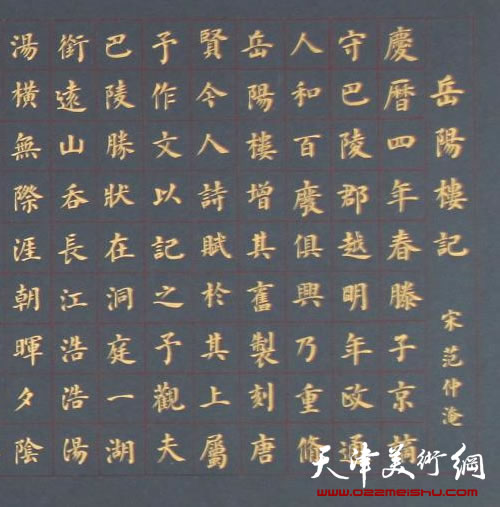 岳陽樓記 宋范仲淹
慶曆四年春滕子京謫
守巴陵郡越明年政通
人和百廢俱興乃重脩
岳陽樓增其舊製刻唐
賢今人詩賦於其上屬
予作文以記之予觀夫
巴陵勝狀在洞庭一湖
銜遠山吞長江浩浩湯
湯橫無際涯朝暉夕陰
天津美術網
www.022meishu.com